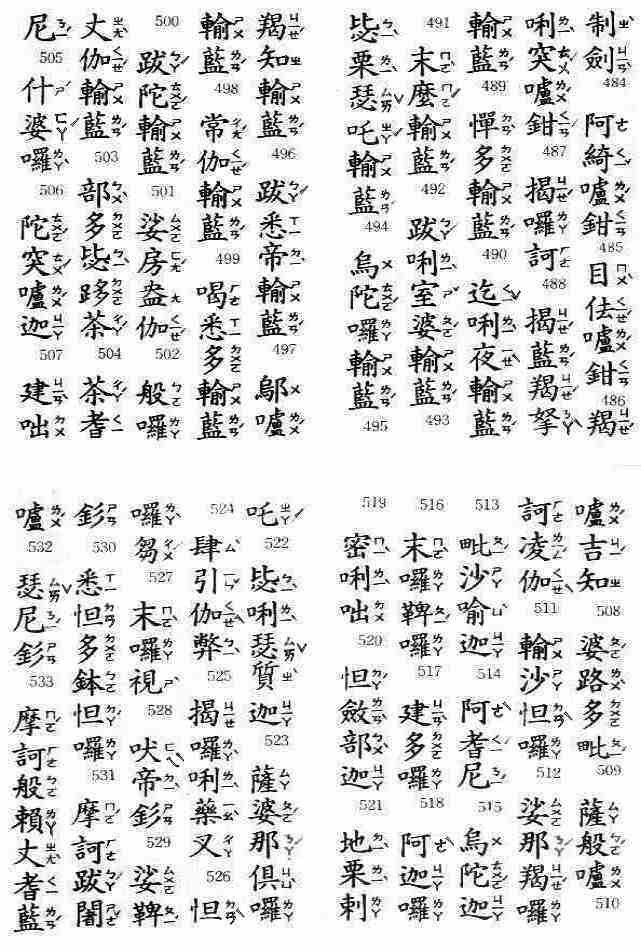 制劍 484 阿綺嚧鉗 485 目佉嚧鉗 486 羯
唎突嚧鉗 487 揭囉訶 488 揭藍羯拏
輸藍 489 憚多輸藍 490 迄唎夜輸藍
491 末麼輸藍 492 跋唎室婆輸藍 493
毖栗瑟吒輸藍 494 烏陀囉輸藍 495
羯知輸藍 496 跋悉帝輸藍 497 鄔嚧
輸藍 498 常伽輸藍 499 喝悉多輸藍
500 跋陀輸藍 501 娑房盎伽 502 般囉
丈伽輸藍 503 部多毖跢茶 504 茶耆
尼 505 什婆囉 506 陀突嚧迦 507 建咄
嚧吉知 508 婆路多毗 509 薩般嚧 510
訶凌伽 511 輸沙怛囉 512 娑那羯囉
513 毗沙喻迦 514 阿耆尼 515 烏陀迦
516 末囉鞞囉 517 建多囉 518 阿迦囉
519 密唎咄 520 怛斂部迦 521 地栗剌
吒 522 毖唎瑟質迦 523 薩婆那俱囉
524 肆引伽弊 525 揭囉唎藥叉 526 怛
囉芻 527 末囉視 528 吠帝釤 529 娑鞞
釤 530 悉怛多鉢怛囉 531 摩訶跋闍
嚧 532 瑟尼釤 533 摩訶般賴丈耆藍